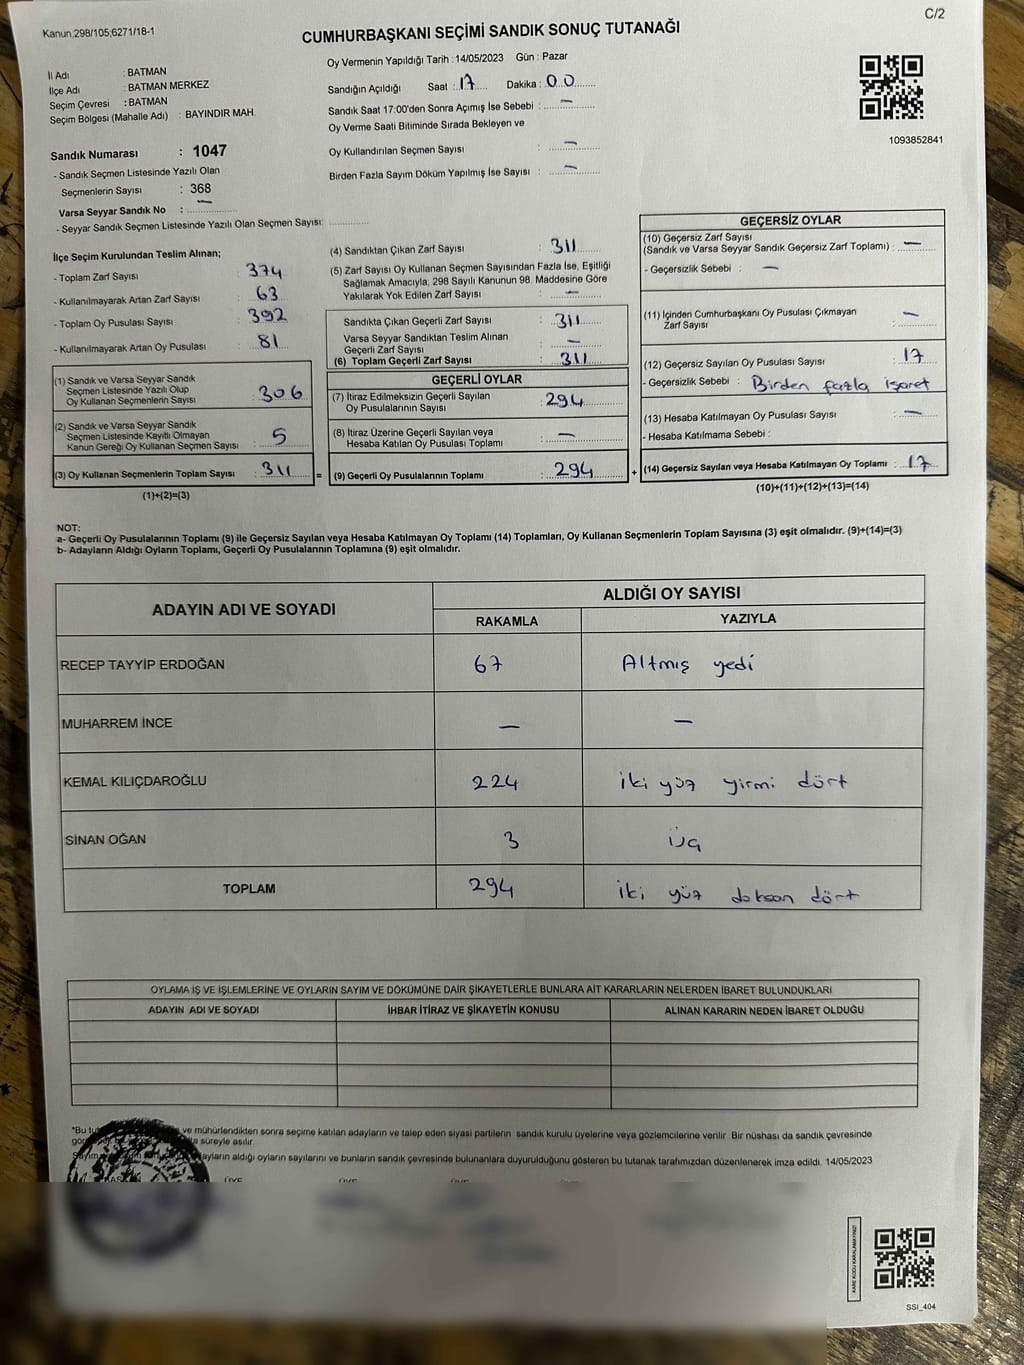 C/2
Kanun;298/105;6271/18-1
CUMHURBAŞKANI SEÇİMİ SANDIK SONUÇ TUTANAĞI
Oy Vermenin Yapıldığı Tarih : 14/05/2023 Gün : Pazar
İl Adı : BATMAN
İlçe Adı : BATMAN MERKEZ
Seçim Çevresi : BATMAN
Seçim Bölgesi (Mahalle Adı) : BAYINDIR MAH.
Sandığın Açıldığı Saat : 17 Dakika : 00
Sandık Saat 17:00'den Sonra Açımış İse Sebebi : —
Oy Verme Saati Bitiminde Sırada Bekleyen ve
Oy Kullandırılan Seçmen Sayısı : —
Birden Fazla Sayım Döküm Yapılmış İse Sayısı : —
1093852841
Sandık Numarası : 1047
- Sandık Seçmen Listesinde Yazılı Olan
Seçmenlerin Sayısı : 368
Varsa Seyyar Sandık No : —
- Seyyar Sandık Seçmen Listesinde Yazılı Olan Seçmen Sayısı:
İlçe Seçim Kurulundan Teslim Alınan;
- Toplam Zarf Sayısı : 374
- Kullanılmayarak Artan Zarf Sayısı : 63
- Toplam Oy Pusulası Sayısı : 392
- Kullanılmayarak Artan Oy Pusulası : 81
(1) Sandık ve Varsa Seyyar Sandık
Seçmen Listesinde Yazılı Olup
Oy Kullanan Seçmenlerin Sayısı : 306
(2) Sandık ve Varsa Seyyar Sandık
Seçmen Listesinde Kayıtlı Olmayan
Kanun Gereği Oy Kullanan Seçmen Sayısı : 5
(3) Oy Kullanan Seçmenlerin Toplam Sayısı : 311 =
(1)+(2)=(3)
(4) Sandıktan Çıkan Zarf Sayısı : 311
(5) Zarf Sayısı Oy Kullanan Seçmen Sayısından Fazla İse, Eşitliği
Sağlamak Amacıyla; 298 Sayılı Kanunun 98. Maddesine Göre
Yakılarak Yok Edilen Zarf Sayısı : —
Sandıkta Çıkan Geçerli Zarf Sayısı : 311
Varsa Seyyar Sandıktan Teslim Alınan
Geçerli Zarf Sayısı : —
(6) Toplam Geçerli Zarf Sayısı : 311
GEÇERLİ OYLAR
(7) İtiraz Edilmeksizin Geçerli Sayılan
Oy Pusulalarının Sayısı : 294
(8) İtiraz Üzerine Geçerli Sayılan veya
Hesaba Katılan Oy Pusulası Toplamı : —
(9) Geçerli Oy Pusulalarının Toplamı : 294 +
GEÇERSİZ OYLAR
(10) Geçersiz Zarf Sayısı
(Sandık ve Varsa Seyyar Sandık Geçersiz Zarf Toplamı) : —
- Geçersizlik Sebebi : —
(11) İçinden Cumhurbaşkanı Oy Pusulası Çıkmayan
Zarf Sayısı : —
(12) Geçersiz Sayılan Oy Pusulası Sayısı : 17
- Geçersizlik Sebebi : Birden fazla işaret
(13) Hesaba Katılmayan Oy Pusulası Sayısı : —
- Hesaba Katılmama Sebebi :
(14) Geçersiz Sayılan veya Hesaba Katılmayan Oy Toplamı : 17
(10)+(11)+(12)+(13)=(14)
NOT:
a- Geçerli Oy Pusulalarının Toplamı (9) ile Geçersiz Sayılan veya Hesaba Katılmayan Oy Toplamı (14) Toplamları, Oy Kullanan Seçmenlerin Toplam Sayısına (3) eşit olmalıdır. (9)+(14)=(3)
b- Adayların Aldığı Oyların Toplamı, Geçerli Oy Pusulalarının Toplamına (9) eşit olmalıdır.
ADAYIN ADI VE SOYADI
ALDIĞI OY SAYISI
RAKAMLA YAZIYLA
RECEP TAYYİP ERDOĞAN 67 Altmış yedi
MUHARREM İNCE — —
KEMAL KILIÇDAROĞLU 224 iki yüz yirmi dört
SİNAN OĞAN 3 üç
TOPLAM 294 iki yüz doksan dört
OYLAMA İŞ VE İŞLEMLERİNE VE OYLARIN SAYIM VE DÖKÜMÜNE DAİR ŞİKAYETLERLE BUNLARA AİT KARARLARIN NELERDEN İBARET BULUNDUKLARI
ADAYIN ADI VE SOYADI İHBAR İTİRAZ VE ŞİKAYETİN KONUSU ALINAN KARARIN NEDEN İBARET OLDUĞU
*Bu ve mühürlendikten sonra seçime katılan adayların ve talep eden siyasi partilerin sandık kurulu üyelerine veya gözlemcilerine verilir. Bir nüshası da sandık çevresinde
süreyle asılır.
aldığı oyların sayılarını ve bunların sandık çevresinde bulunanlara duyurulduğunu gösteren bu tutanak tarafımızdan düzenlenerek imza edildi. 14/05/2023
KARE KODU KARALAMAYINIZ!
SSI_404